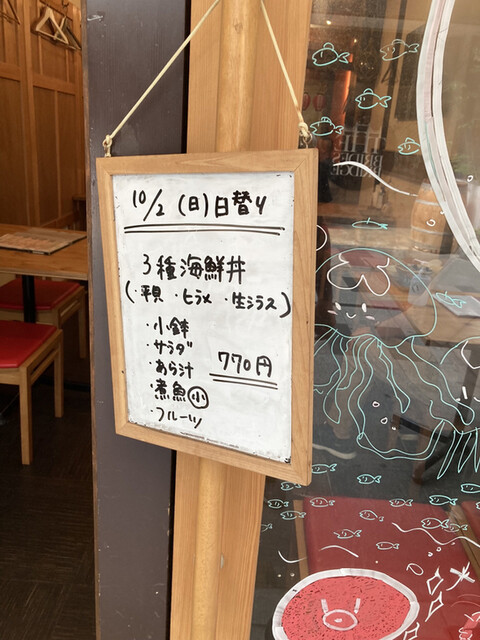 10/2 (日)日替り
3種海鮮丼
(・平貝 ・ヒラメ ・生シラス)
・小鉢
・サラダ
・あら汁
・煮魚 小
・フルーツ
770円
BRIDGE